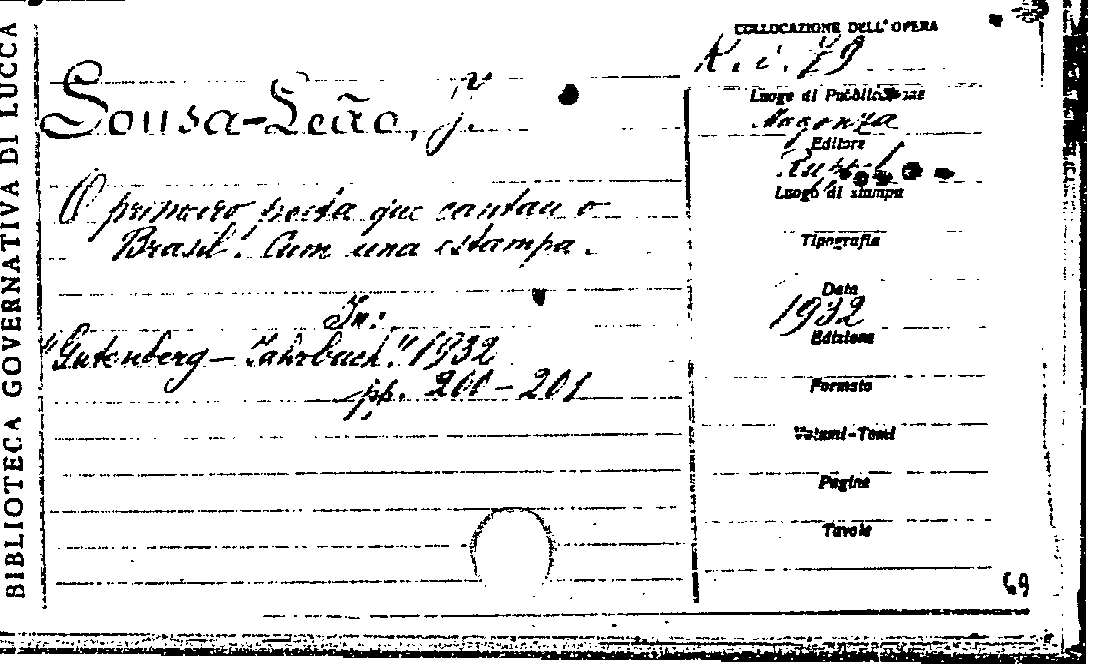 BIBLIOTECA GOVERNATIVA DI LUCCA
COLLOCAZIONE DELL'OPERA
K. i. 79
Sousa-Leão, J.
Luogo di Pubblicazione
Magonza
Editore
Ruppel
O primeiro poeta que cantau o
Brasil. Cum una estampa.
In:
"Gutenberg - Jahrbach." 1932
pp. 200-201
Luogo di stampa
Tipografia
Data
1932
Edizione
Formato
Volumi-Tomi
Pagine
Tavole
69